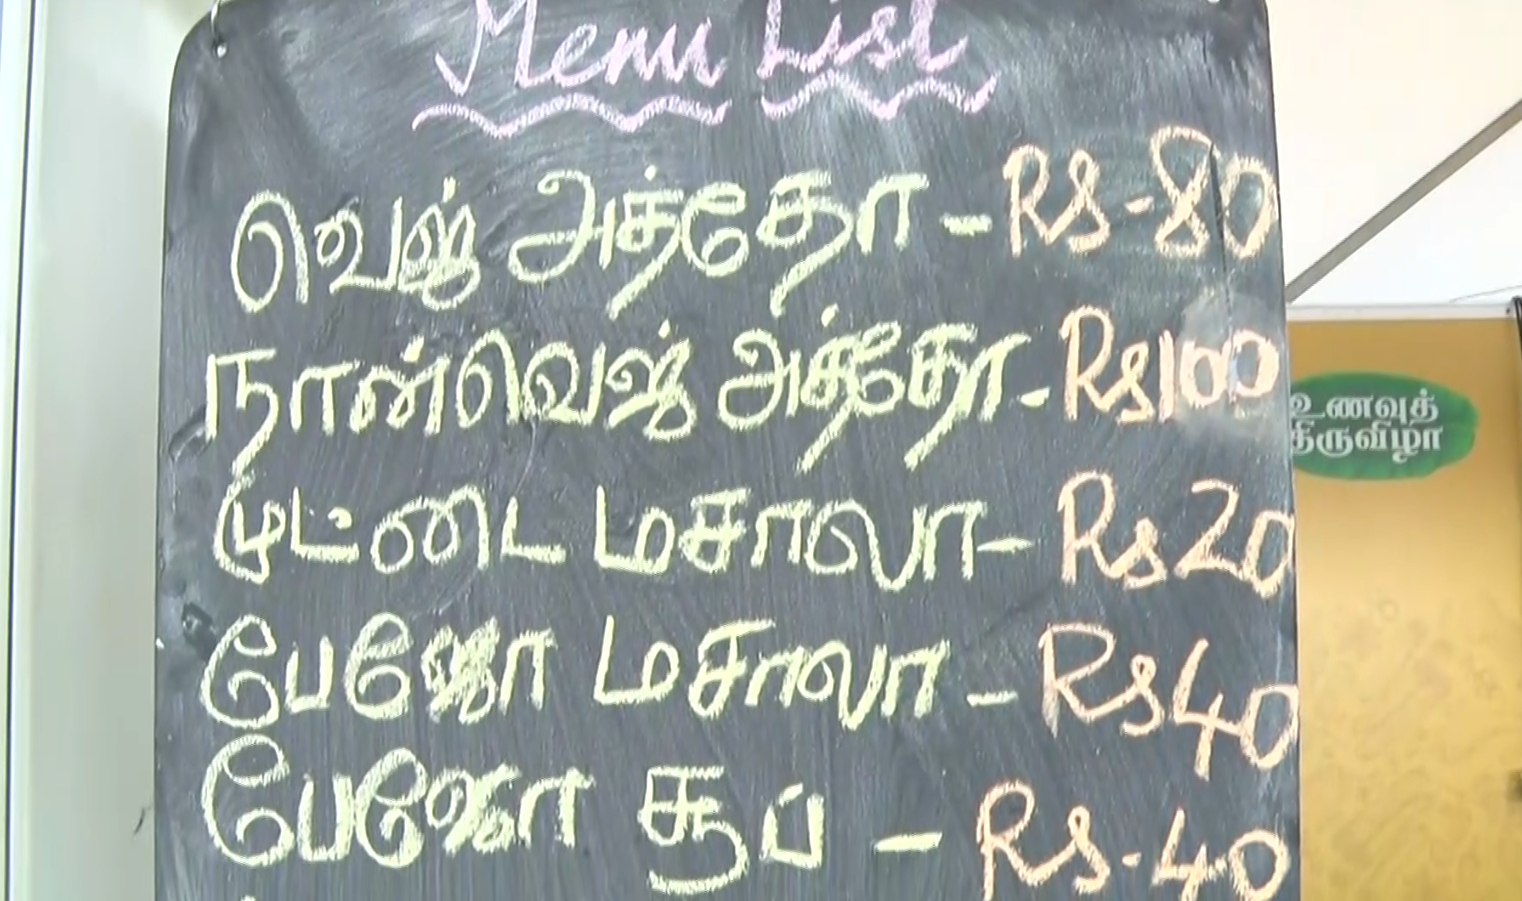 Menu List
வெஜ் அத்தோ - RS-80
நான்வெஜ் அத்தோ - Rs100
முட்டை மசாலா - Rs20
பேஜோ மசாலா - Rs40
பேஜோ சூப் - RS-40
உணவுத்
திருவிழா